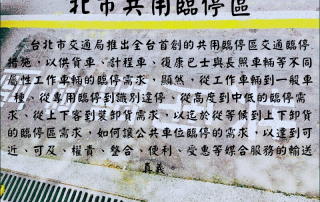 北市共用臨停區
台北市交通局推出全台首創的共用臨停區交通臨停
措施，以供貨車、計程車、復康巴士與長照車輛等不同
屬性工作車輛的臨停需求，顯然，從工作車輛到一般車
種、從專用臨停到識別違停、從高度到中低的臨停需
求、從上下客到裝卸貨需求，以迄於從等候到上下卸貨
的臨停區需求，如何讓公共車位臨停的需求，以達到可
近、可及、權責、整合、便利、受惠等媒合服務的輸送
真義